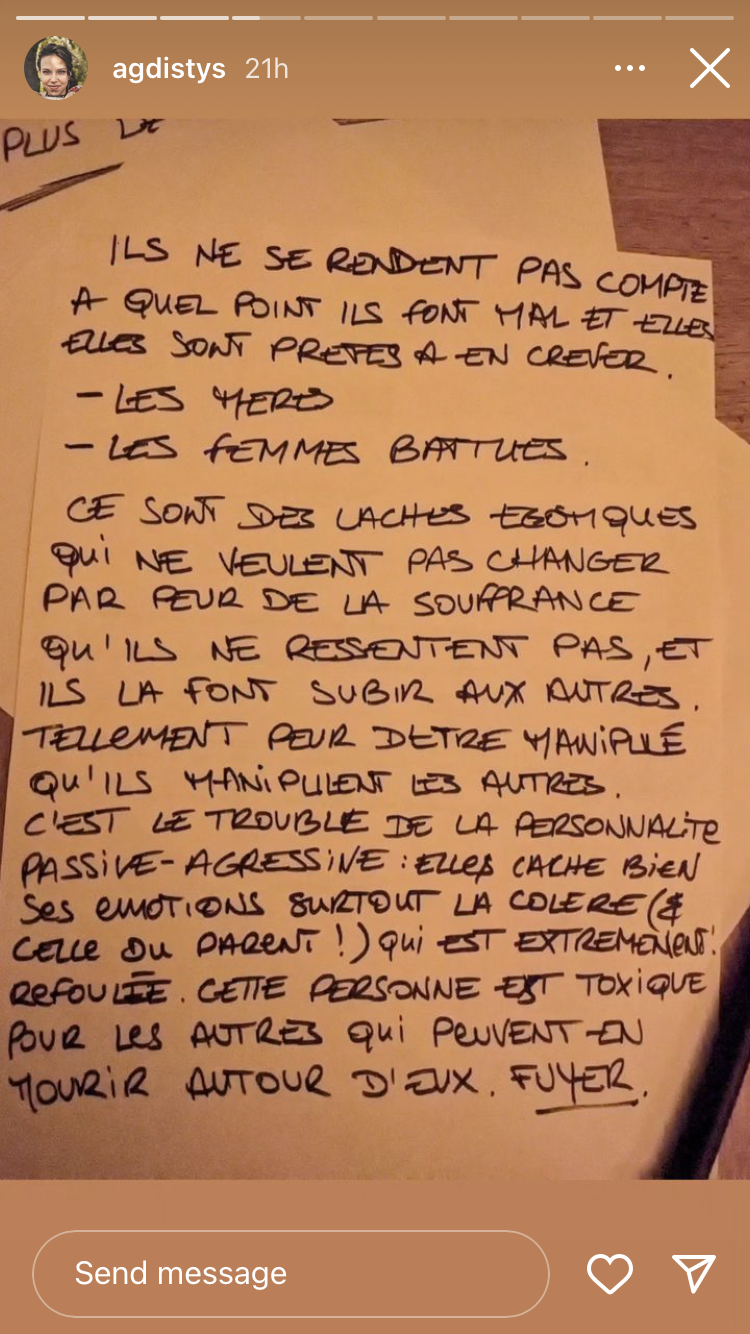 agdistys 21h
PLUS DE
ILS NE SE RENDENT PAS COMPTE
A QUEL POINT ILS FONT MAL ET ELLES
ELLES SONT PRETES A EN CREVER.
- LES MERES
- LES FEMMES BATTUES.
CE SONT DES LACHES EGOTIQUES
QUi NE VEULENT PAS CHANGER
PAR PEUR DE LA SOUFFRANCE
QU'ILS NE RESSENTENT PAS, ET
ILS LA FONT SUBIR AUX AUTRES.
TELLEMENT PEUR D'ETRE MANiPULÉ
QU'ILS MANIPULENT LES AUTRES.
C'EST LE TROUBLE DE LA PERSONNALiTe
PASSiVE-AGRESSiVE : ELLES CACHE BiEN
SES eMOTIONS SURTOUT LA COLERE (&
CELLE DU PARENT !) QUi EST EXTREMEMENT!
REFOULÉE. CETTE PERSONNE EST TOXiQUE
POUR LES AUTRES QUi PEUVENT EN
MOURiR AUTOUR D'EUX. FUYER.
Send message